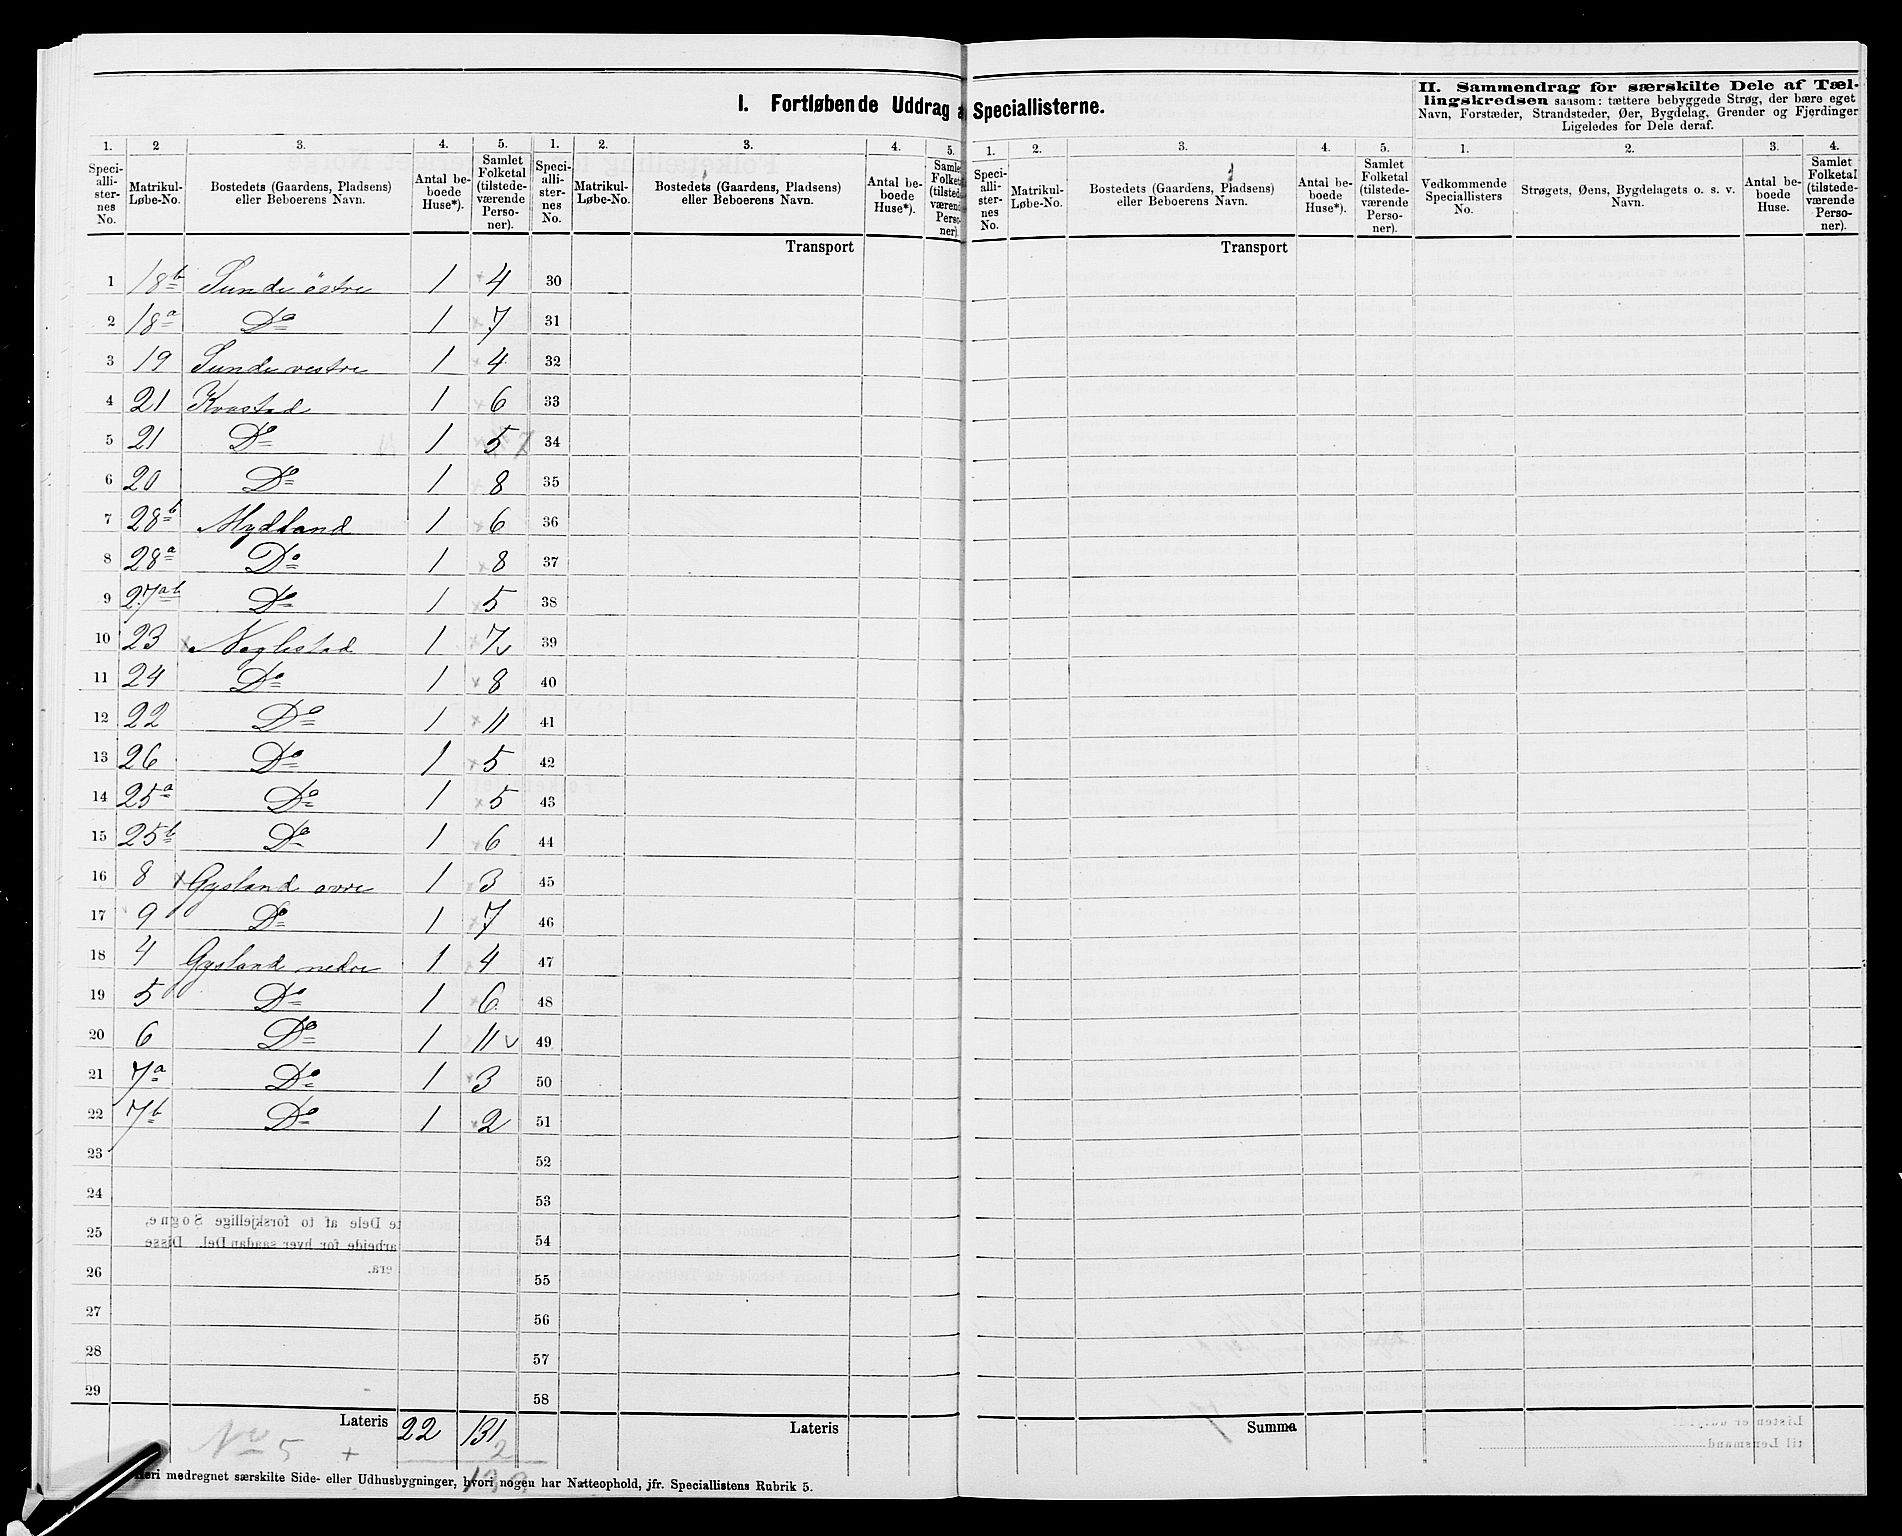 I. Fortløbende Uddrag a Speciallisterne.
II. Sammendrag for særskilte Dele af Tæl-
lingskredsen saasom: tættere bebyggede Strøg, der bære eget
Navn, Forstæder, Strandsteder, Øer, Bygdelag, Grender og Fjerdinger
Ligeledes for Dele deraf.
1. 2 3. 4. 5. 1. 2. 3. 4. 5. 1. 2. 3. 4. 5. 1. 2. 3. 4.
Speci-alli-ster-nes No. Matrikul-Løbe-No. Bostedets (Gaardens, Pladsens) eller Beboerens Navn. Antal be-boede Huse*). Samlet Folketal (tilstede-værende Perso-ner).
Speci-alli-ster-nes No. Matrikul-Løbe-No. Bostedets (Gaardens, Pladsens) eller Beboerens Navn. Antal be-boede Huse*). Samlet Folketal (tilstede-værende Perso-ner).
Speci-alli-ster-nes No. Matrikul-Løbe-No. Bostedets (Gaardens, Pladsens) eller Beboerens Navn. Antal be-boede Huse*). Samlet Folketal (tilstede-værende Perso-ner).
Vedkommende Speciallisters No. Strøgets, Øens, Bygdelagets o. s. v. Navn. Antal be-boede Huse. Samlet Folketal (tilstede-værende Perso-ner).
Transport Transport
1 18b Sunde östre 1 × 4 30
2 18a Do 1 × 7 31
3 19 Sunde vestre 1 × 4 32
4 21 Kvastad 1 × 6 33
5 21 Do 1 × 5 7 34
6 20 Do 1 × 8 35
7 28b Mydland 1 × 6 36
8 28a Do 1 × 8 37
9 27ab Do 1 × 5 38
10 23 × Neglestad 1 × 7 v 39
11 24 Do 1 × 8 40
12 22 Do 1 × 11 41
13 26 Do 1 × 5 42
14 25a Do 1 × 5 43
15 25b Do 1 × 6 44
16 8 × Gysland øvre 1 × 3 45
17 9 Do 1 × 7 46
18 4 Gysland nedre 1 × 4 47
19 5 Do 1 × 6 48
20 6 Do 1 11 v 49
21 7a Do 1 × 3 50
22 7b Do 1 × 2 51
23 52
24 53
25 54
26 55
27 56
28 57
29 58
Lateris 22 131 Lateris Summa
No 5 + 2
Heri medregnet særskilte Side- eller Udhusbygninger, hvori nogen har Natteophold, jfr. Speciallistens Rubrik 5.